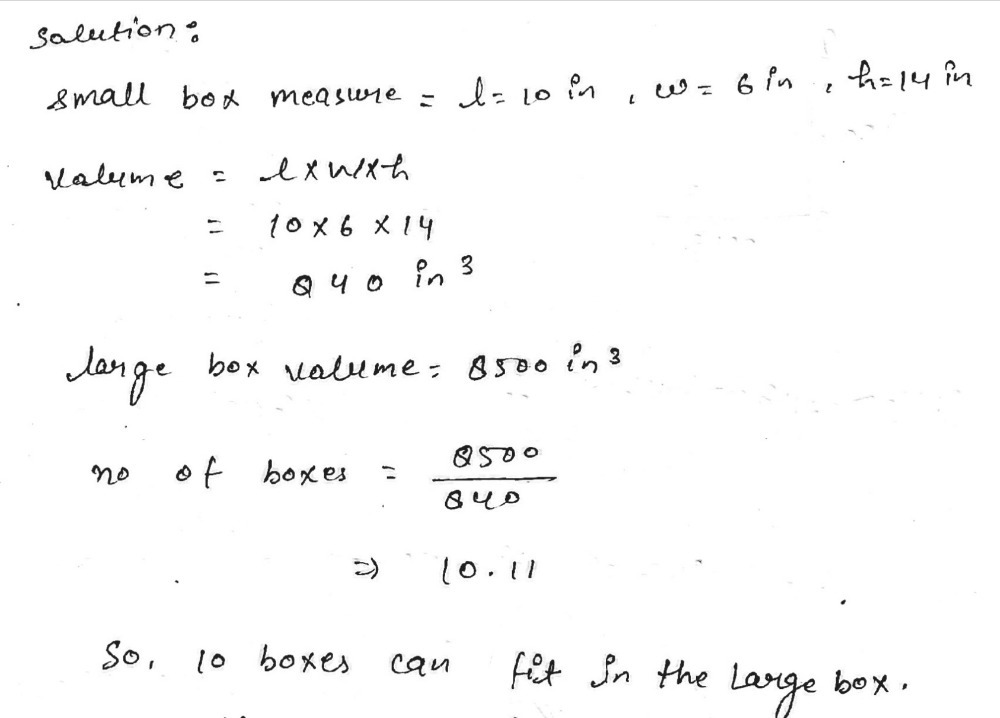 Solution:
small box measure = l = 10 in , w = 6 in , h = 14 in
Volume = l x w x h
= 10 x 6 x 14
= 840 in³
large box volume = 8500 in³
no of boxes = 8500
840
=> 10.11
So, 10 boxes can fit in the Large box.